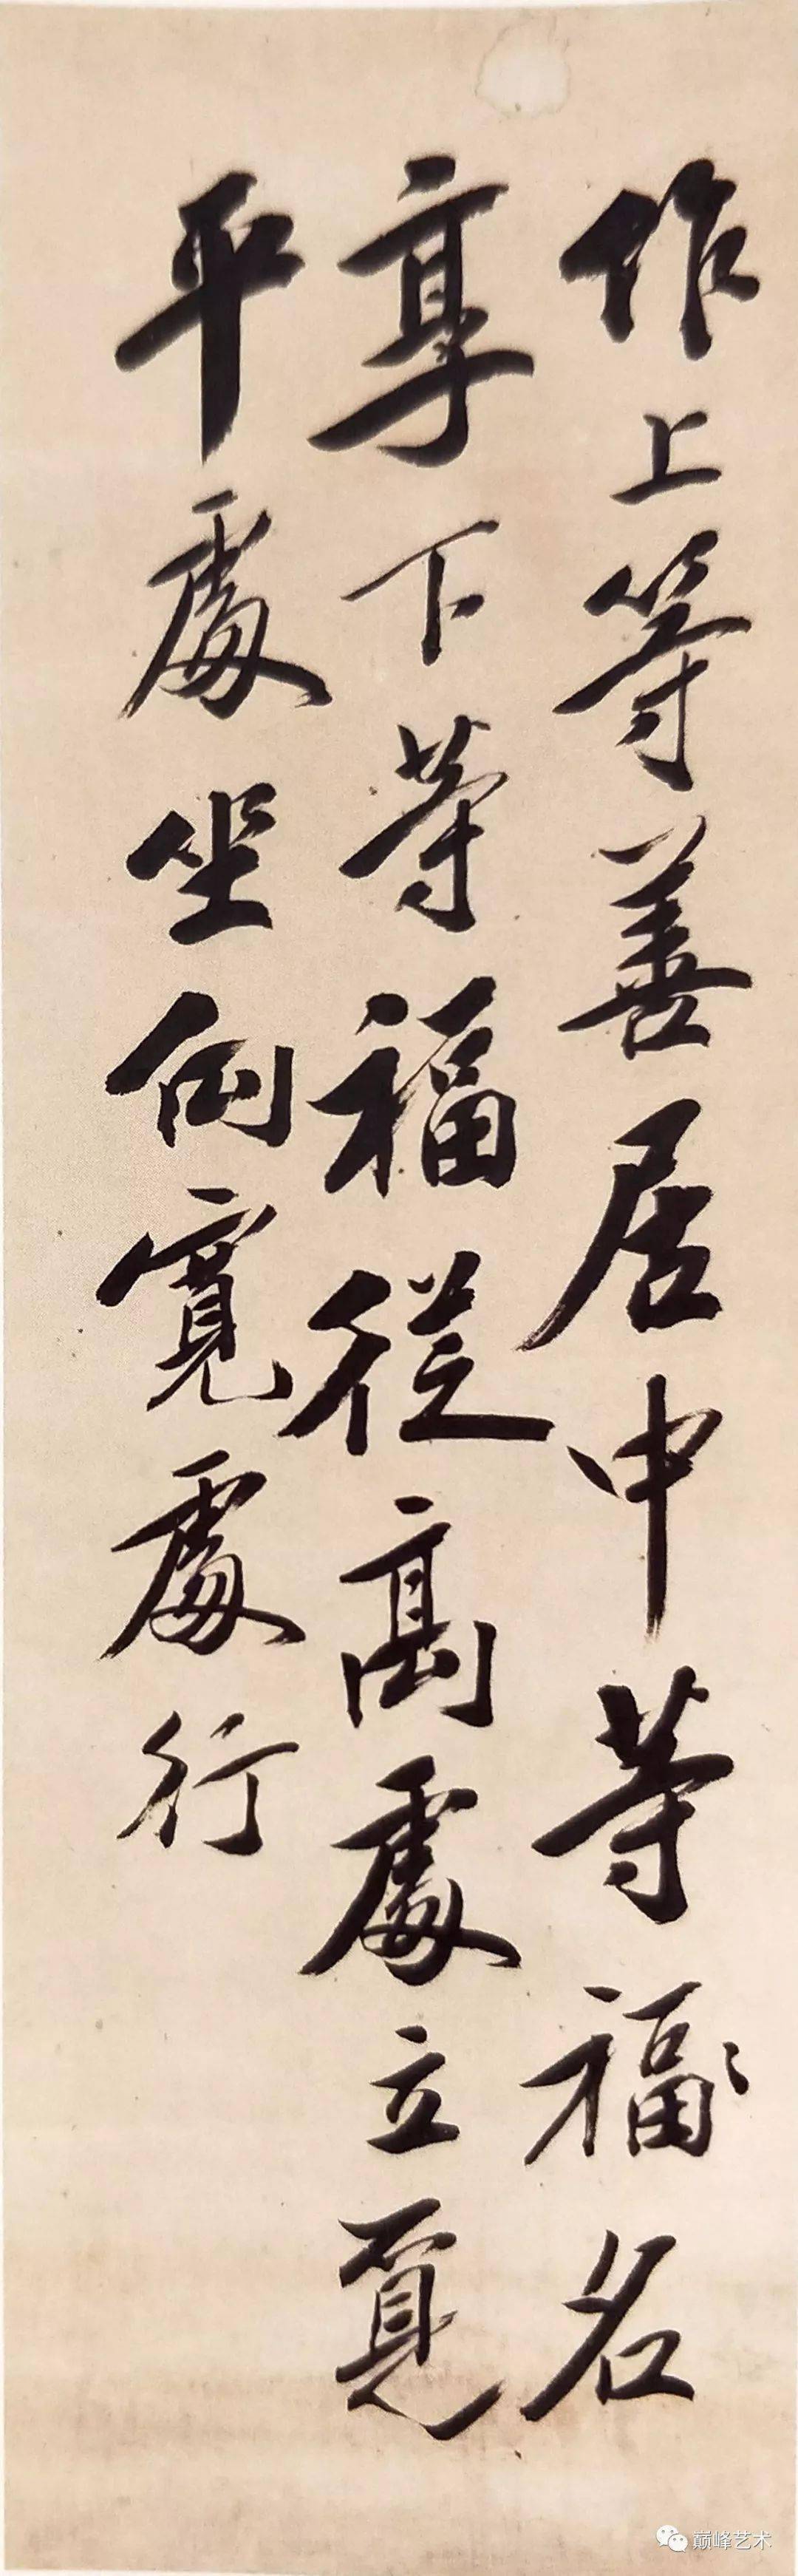 作上等善居中等福名
享下等福從高處立覓
平處坐向寬處行
巅峰艺术